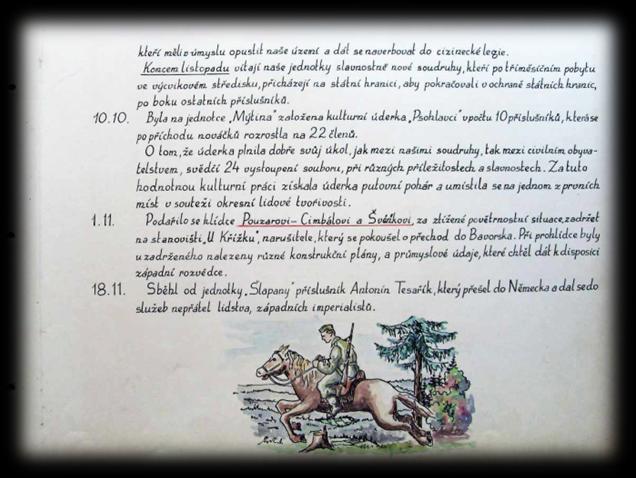 kteří měli v úmyslu opustit naše území a dát se naverbovat do cizinecké legie.
Koncem listopadu vítají naše jednotky slavnostně nové soudruhy, kteří po tříměsíčním pobytu
ve výcvikovém středisku, přicházejí na státní hranici, aby pokračovali v ochraně státních hranic,
po boku ostatních příslušníků.
10.10. Byla na jednotce „Mýtina" založena kulturní úderka „Psohlavci" v počtu 10 příslušníků, která se
po příchodu nováčků rozrostla na 22 členů.
O tom, že úderka plnila dobře svůj úkol, jak mezi našimi soudruhy, tak mezi civilním obyva-
telstvem, svědčí 24 vystoupení souboru, při různých příležitostech a slavnostech. Za tuto
hodnotnou kulturní práci získala úderka putovní pohár a umístila se na jednom z prvních
míst v soutěži okresní lidové tvořivosti.
1.11. Podařilo se hlídce Pouzarovi - Cimbálovi a Švédkovi, za ztížené povětrnostní situace, zadržet
na stanovišti „U Křížku", narušitele, který se pokoušel o přechod do Bavorska. Při prohlídce byly
u zadrženého nalezeny různé konstrukční plány, a průmyslové údaje, které chtěl dát k disposici
západní rozvědce.
18.11. Sběhl od jednotky „Slapany" příslušník Antonín Tesařík, který přešel do Německa a dal se do
služeb nepřátel lidstva, západních imperialistů.